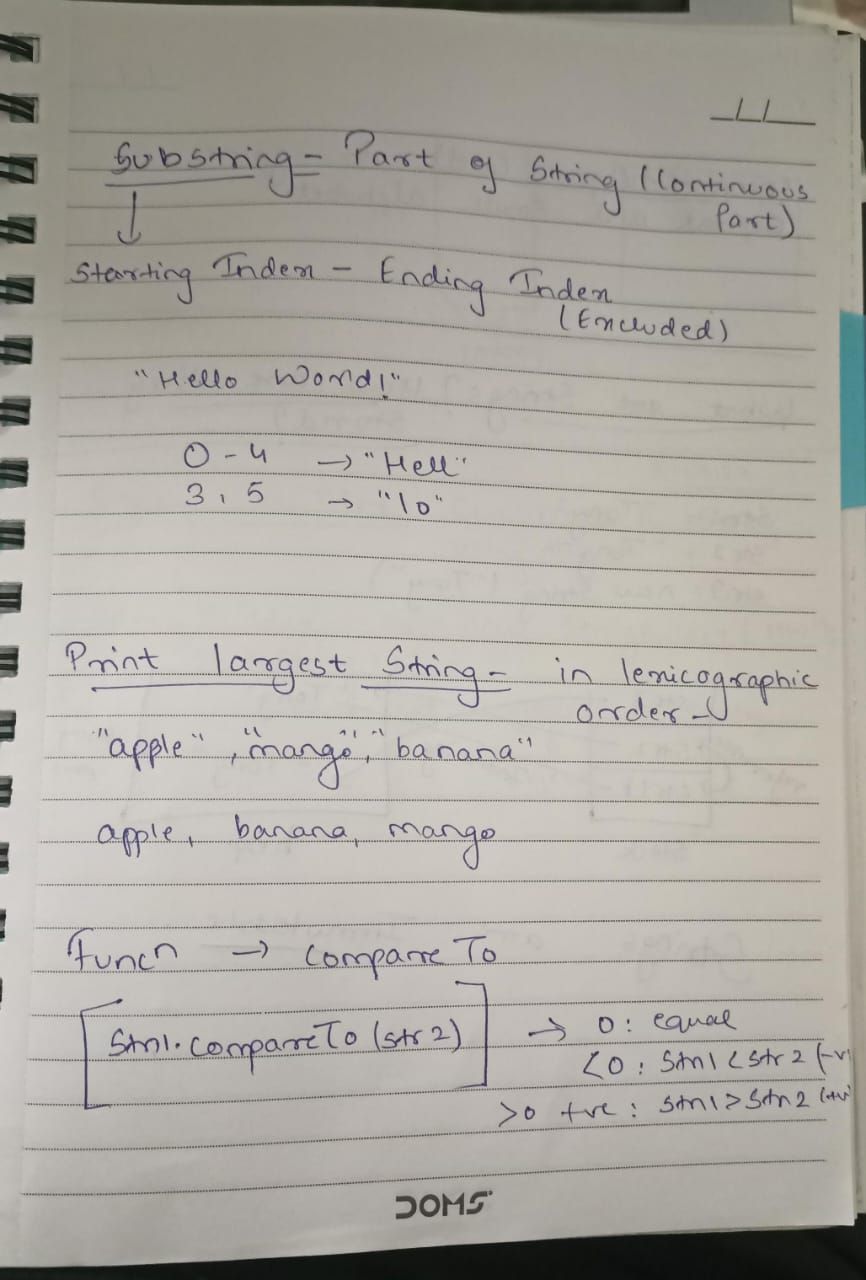 Substring - Part of String (Continuous
Part)
↓
Starting Index - Ending Index
(Excluded)
"Hello World!"
0 - 4 → "Hell"
3, 5 → "lo"
Print largest String - in lexicographic
order
"apple", "mango", "banana"
apple, banana, mango
Funcn → compare To
[Str1.compareTo (str2)] → 0 : equal
<0 : str1 < str2 (-v
>0 +ve : str1 > str2 (+v
DOMS